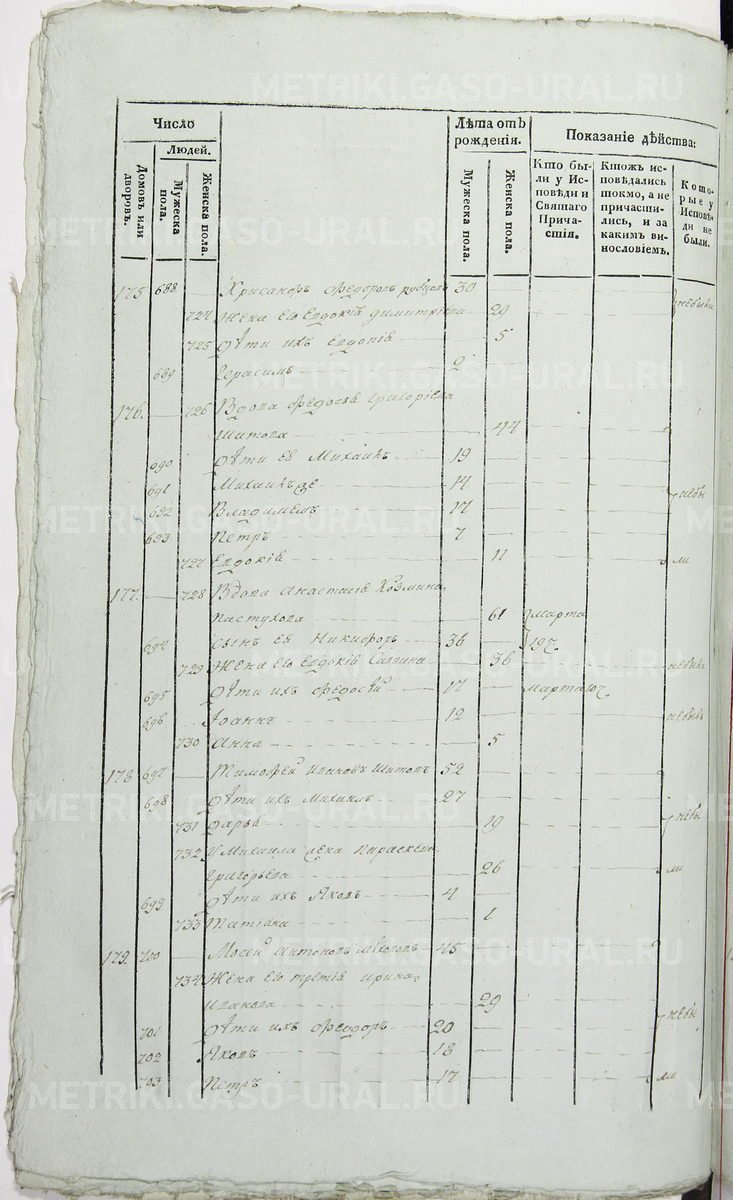 Число
Людей.
Домовъ или дворовъ.
Мужеска пола.
Женска пола.
Лѣта отъ рожденія.
Мужеска пола.
Женска пола.
Показаніе дѣйства:
Кто были у Исповѣди и Святаго Причастія.
Ктожъ исповѣдались токмо, а не причастились, и за какимъ винословіемъ.
Которые у Исповѣди не были.
175 688 Хрисанфъ Федоровъ 30
724 Жена его Евдокія Димитріева 29 небыли
725 Дѣти ихъ Евдокія 5
689 Герасимъ 2
176. 726 Вдова Федосья Григоріева
Шитова 44
690 Дѣти ея Михаилъ 19
691 Михаилъ же 14 небы
692 Владимемъ 17
693 Петръ 7
727 Евдокія 11 ли
177. 728 Вдова Анастасія Козмина
Пастухова 61 Марта
694 сынъ ея Никифоръ 36 19
729 Жена его Евдокія Саввина 36 небыла
695 Дѣти ихъ Федосѣй 17 Марта
696 Іоаннъ 12 небылъ
730 Анна 5
178 697 Тимофей Ивановъ Шитовъ 52
698 Дѣти ихъ Михаилъ 27
731 Дарья 19 небы
732 У Михаила жена Параскева
Григорьева 26 ли
699 Дѣти ихъ Яковъ 4
733 Татіана 1
179. 700 Мосей Антоновъ 45
734 Жена его третія Ирина
Иванова 29
701 Дѣти ихъ Феодоръ 20 небы
702 Яковъ 18
703 Петръ 17 ли
METRIKI.GASO-URAL.RU